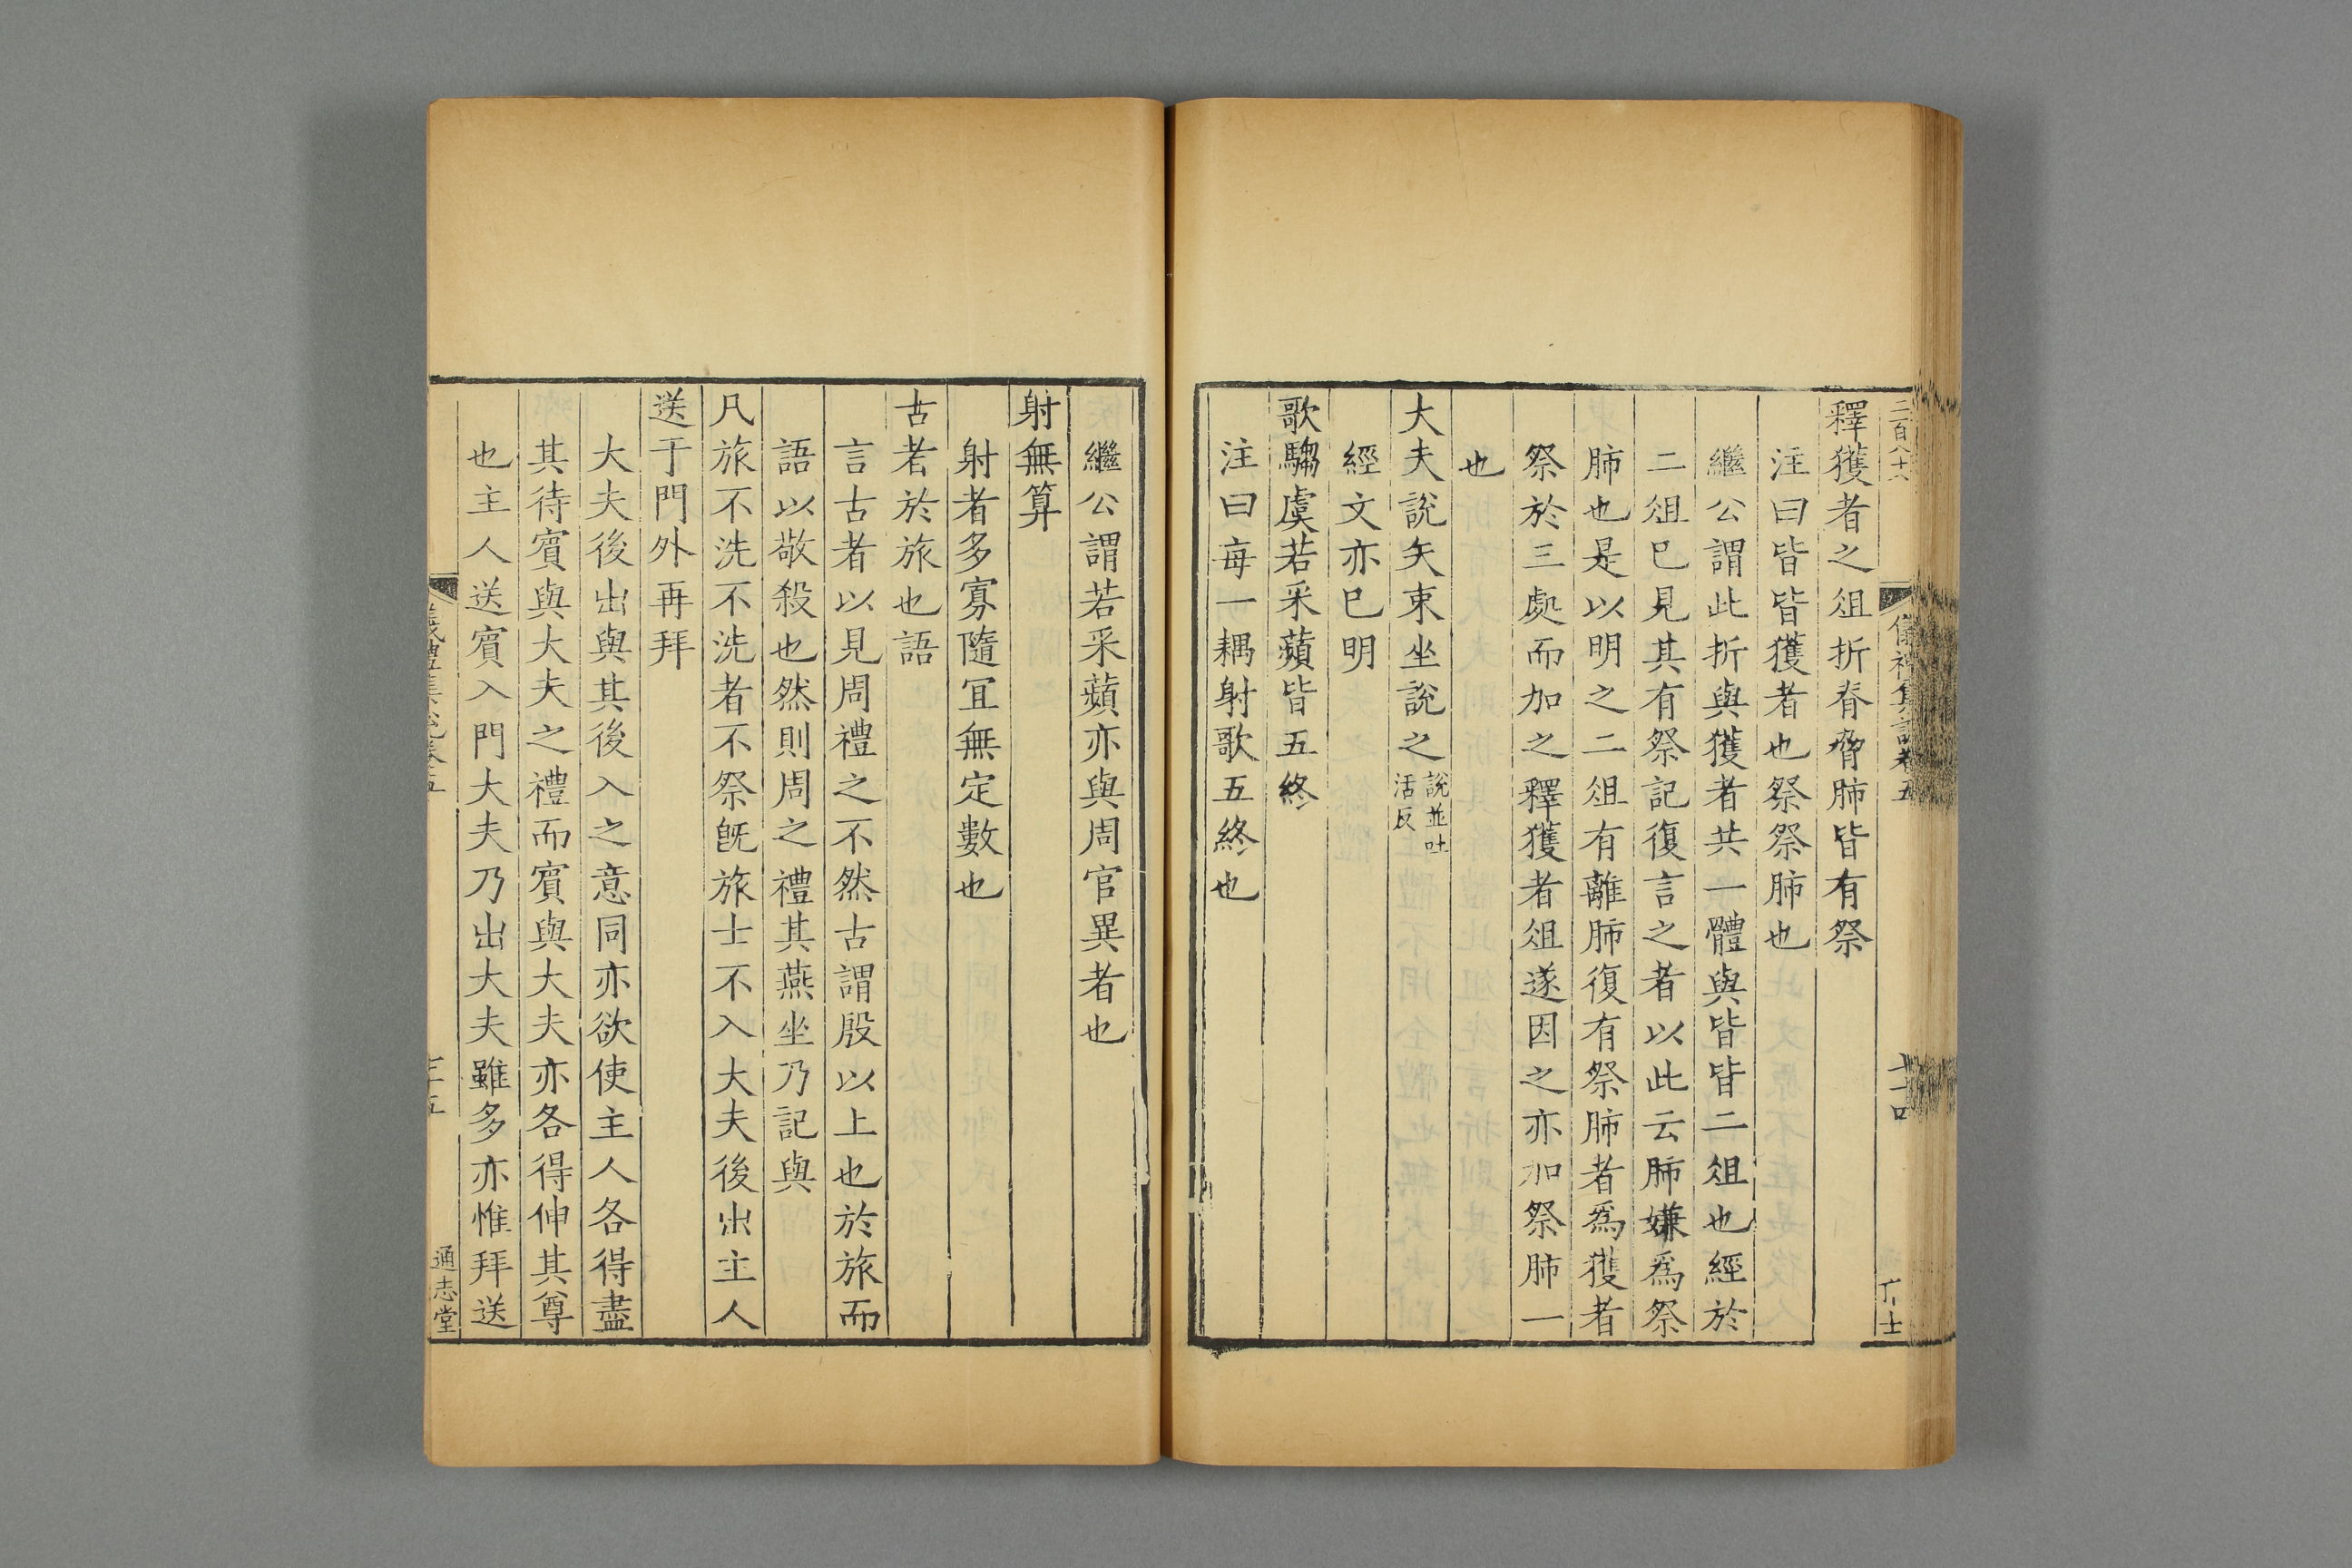 釋獲者之俎折脊脅肺皆有祭
注曰皆皆獲者也祭祭肺也
繼公謂此折與獲者共一體與皆皆二俎也經於
二俎巳見其有祭記復言之者以此云肺嫌爲祭
肺也是以明之二俎有離肺復有祭肺者爲獲者
祭於三處而加之釋獲者俎遂因之亦加祭肺一
也
大夫說矢束坐說之說並吐活反
經文亦巳明
歌騶虞若采蘋皆五終
注曰每一耦射歌五終也
繼公謂若采蘋亦與周官異者也
射無算
射者多寡隨宜無定數也
古者於旅也語
言古者以見周禮之不然古謂殷以上也於旅而
語以敬殺也然則周之禮其燕坐乃記與
凡旅不洗不洗者不祭旣旅士不入大夫後出主人
送于門外再拜
大夫後出與其後入之意同亦欲使主人各得盡
其待賓與大夫之禮而賓與大夫亦各得伸其尊
也主人送賓入門大夫乃出大夫雖多亦惟拜送
通志堂